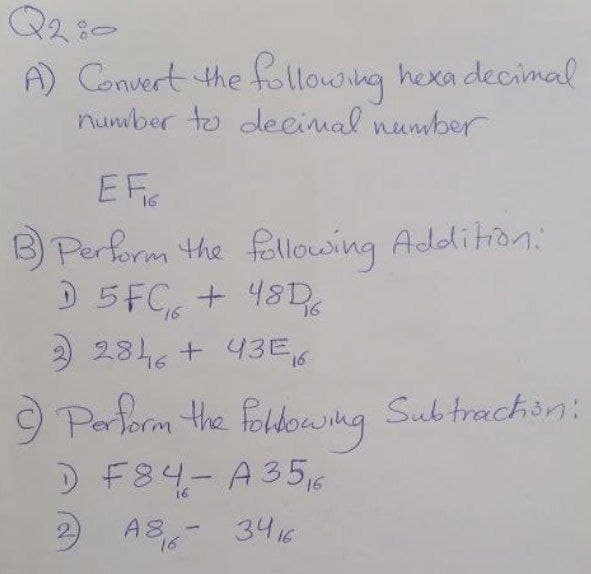 Q2:-
A) Convert the following hexadecimal
number to decimal number
EF₁₆
B) Perform the following Addition:
1) 5FC₁₆ + 48D₁₆
2) 284₁₆ + 43E₁₆
C) Perform the following Subtraction:
1) F84₁₆ - A35₁₆
2) A8₁₆ - 34₁₆